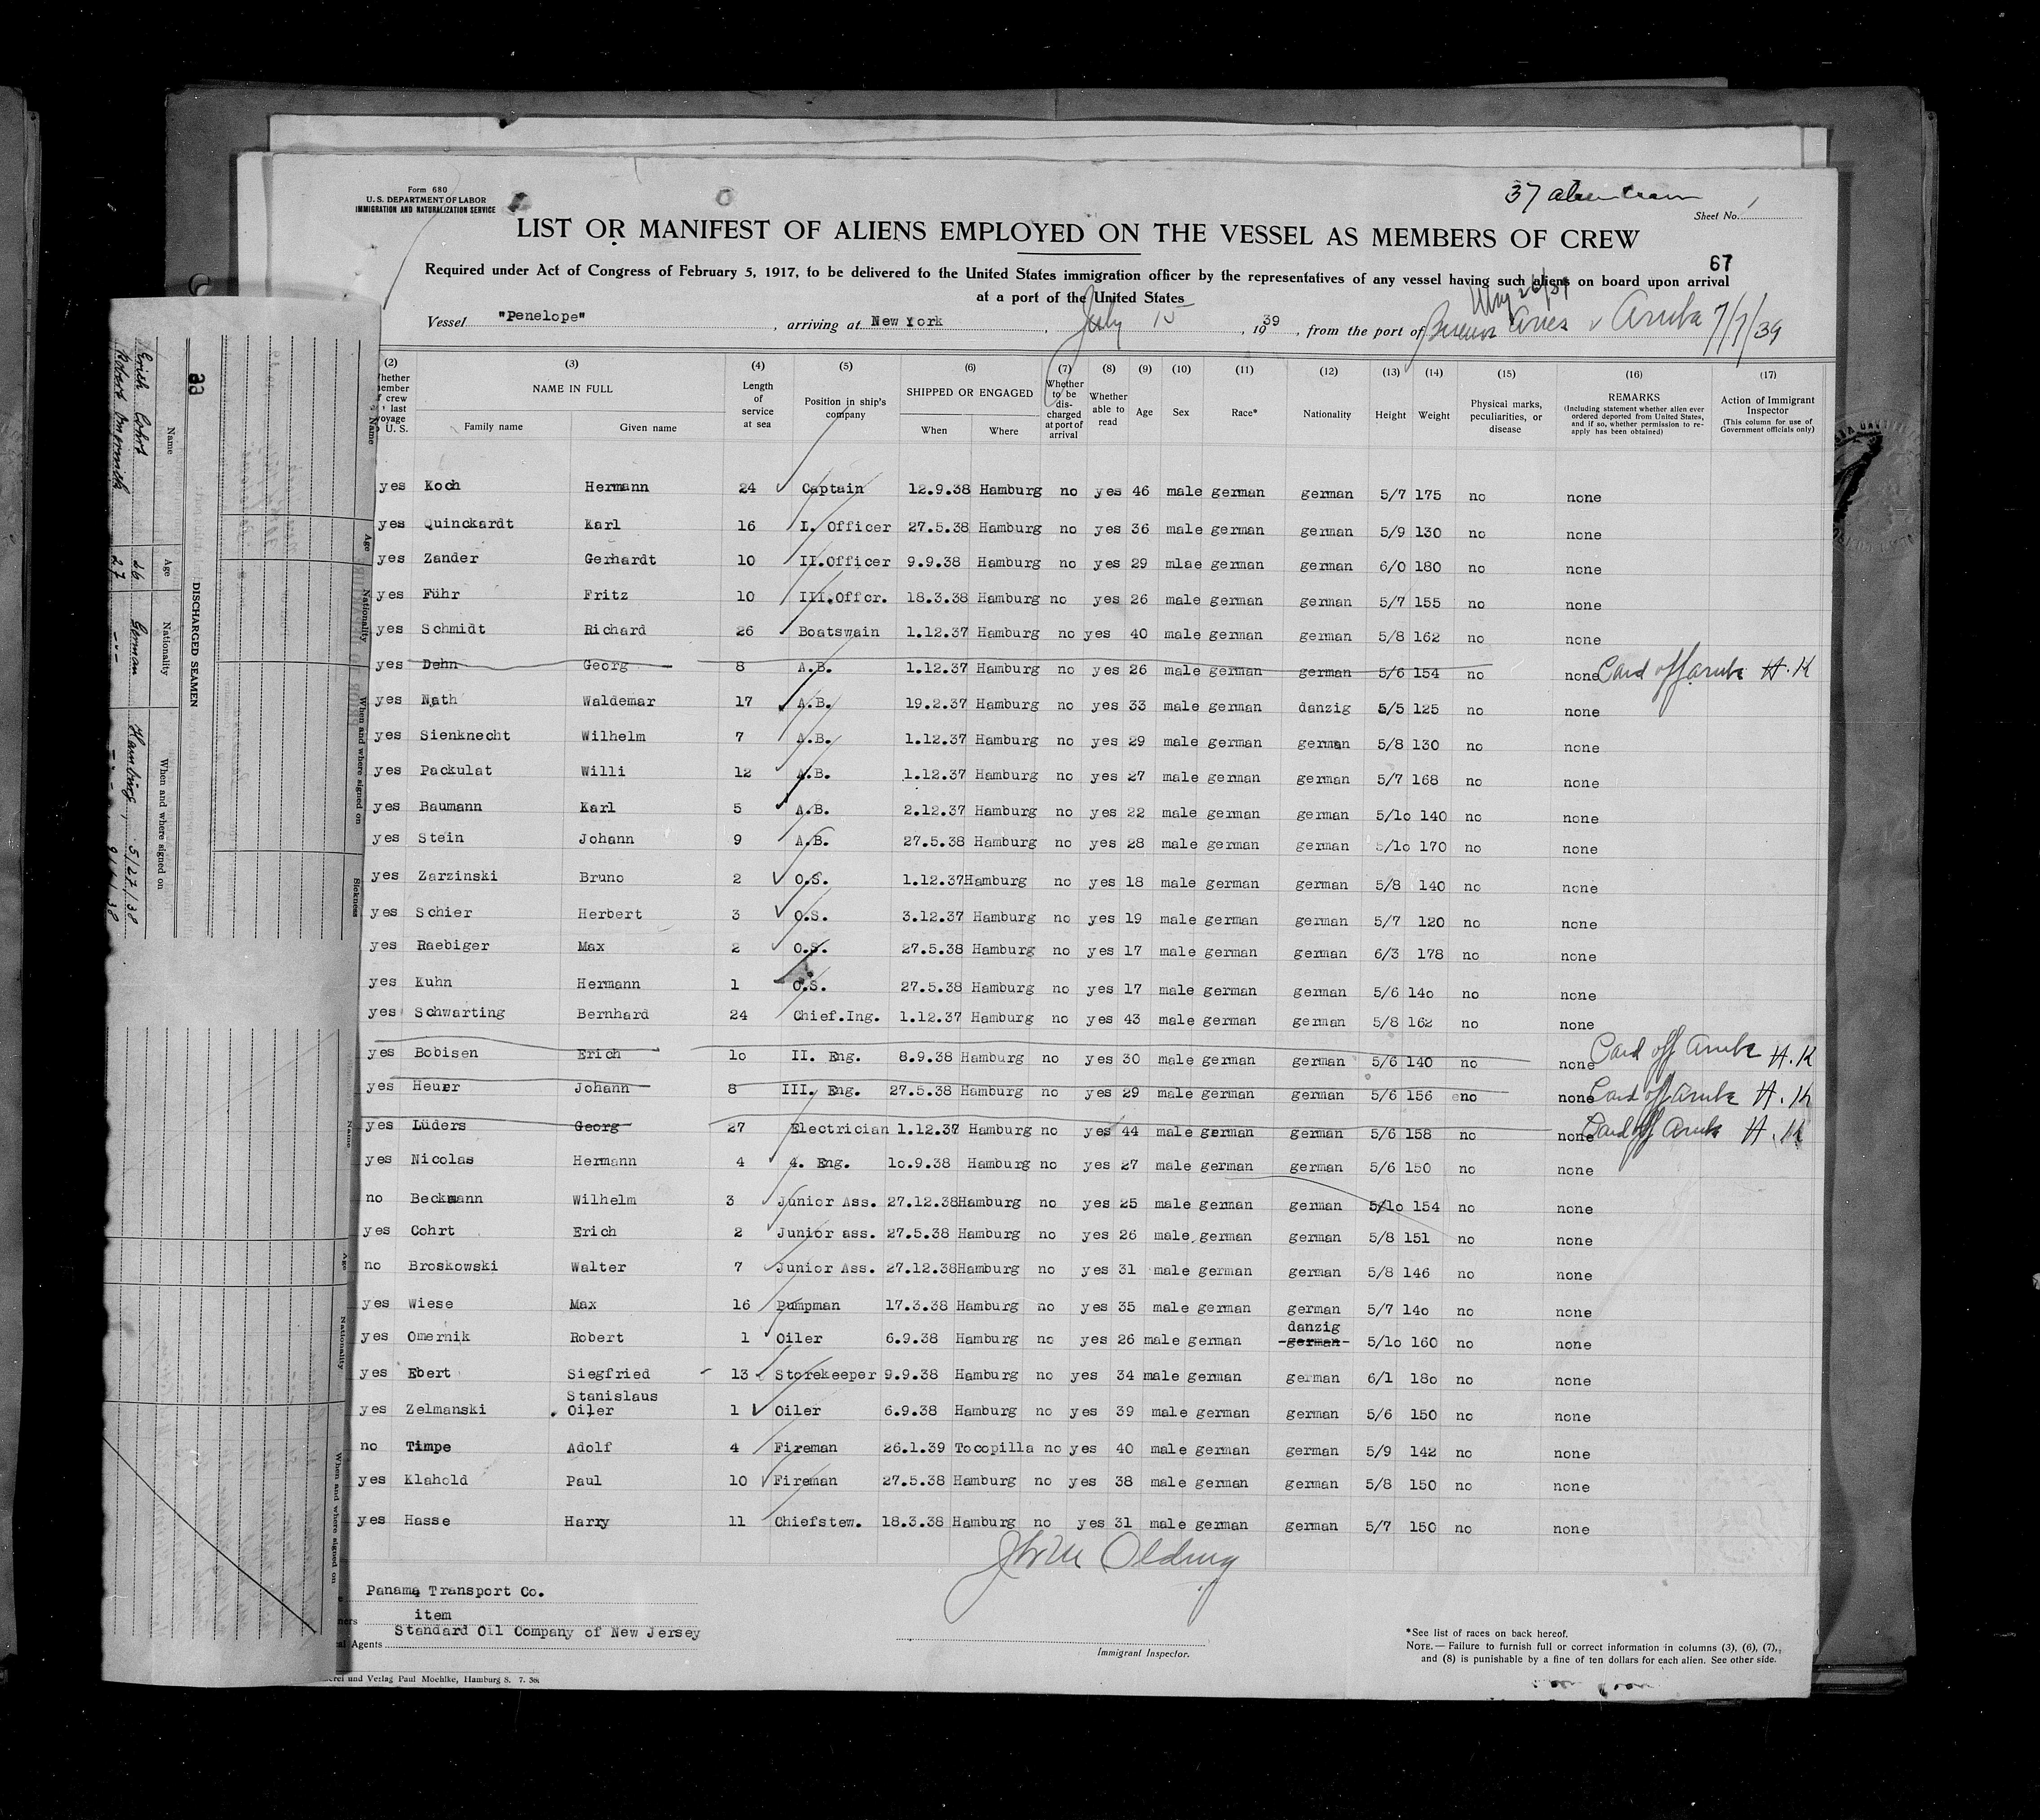 Form 680
U. S. DEPARTMENT OF LABOR
IMMIGRATION AND NATURALIZATION SERVICE
37 alien crew
Sheet No. 1
LIST OR MANIFEST OF ALIENS EMPLOYED ON THE VESSEL AS MEMBERS OF CREW
67
Required under Act of Congress of February 5, 1917, to be delivered to the United States immigration officer by the representatives of any vessel having such aliens on board upon arrival
at a port of the United States
May 26/39
Vessel "Penelope", arriving at New York, July 15, 1939, from the port of Buenos Aires v Aruba 7/7/39
(2) (3) (4) (5) (6) (7) (8) (9) (10) (11) (12) (13) (14) (15) (16) (17)
NAME IN FULL Length of service at sea Position in ship's company SHIPPED OR ENGAGED Whether to be discharged at port of arrival Whether able to read Age Sex Race* Nationality Height Weight Physical marks, peculiarities, or disease REMARKS (Including statement whether alien ever ordered deported from United States, and if so, whether permission to reapply has been obtained) Action of Immigrant Inspector (This column for use of Government officials only)
Family name Given name When Where
yes Koch Hermann 24 Captain 12.9.38 Hamburg no yes 46 male german german 5/7 175 no none
yes Quinckardt Karl 16 I. Officer 27.5.38 Hamburg no yes 36 male german german 5/9 130 no none
yes Zander Gerhardt 10 II.Officer 9.9.38 Hamburg no yes 29 mlae german german 6/0 180 no none
yes Führ Fritz 10 III.Offcr. 18.3.38 Hamburg no yes 26 male german german 5/7 155 no none
yes Schmidt Richard 26 Boatswain 1.12.37 Hamburg no yes 40 male german german 5/8 162 no none
yes Dehn Georg 8 A.B. 1.12.37 Hamburg no yes 26 male german german 5/6 154 no none Paid off Aruba H.K
yes Nath Waldemar 17 A.B. 19.2.37 Hamburg no yes 33 male german danzig 5/5 125 no none
yes Sienknecht Wilhelm 7 A.B. 1.12.37 Hamburg no yes 29 male german german 5/8 130 no none
yes Packulat Willi 12 A.B. 1.12.37 Hamburg no yes 27 male german german 5/7 168 no none
yes Baumann Karl 5 A.B. 2.12.37 Hamburg no yes 22 male german german 5/1o 140 no none
yes Stein Johann 9 A.B. 27.5.38 Hamburg no yes 28 male german german 5/1o 170 no none
yes Zarzinski Bruno 2 O.S. 1.12.37Hamburg no yes 18 male german german 5/8 140 no none
yes Schier Herbert 3 O.S. 3.12.37 Hamburg no yes 19 male german german 5/7 120 no none
yes Raebiger Max 2 O.S. 27.5.38 Hamburg no yes 17 male german german 6/3 178 no none
yes Kuhn Hermann 1 O.S. 27.5.38 Hamburg no yes 17 male german german 5/6 14o no none
yes Schwarting Bernhard 24 Chief.Ing. 1.12.37 Hamburg no yes 43 male german german 5/8 162 no none
yes Bobisen Erich 1o II. Eng. 8.9.38 Hamburg no yes 30 male german german 5/6 140 no none Paid off Aruba H.K
yes Heuer Johann 8 III. Eng. 27.5.38 Hamburg no yes 29 male german german 5/6 156 no none Paid off Aruba H.K
yes Lüders Georg 27 Electrician 1.12.37 Hamburg no yes 44 male german german 5/6 158 no none Paid off Aruba H.K
yes Nicolas Hermann 4 4. Eng. 1o.9.38 Hamburg no yes 27 male german german 5/6 150 no none
no Beckmann Wilhelm 3 Junior Ass. 27.12.38Hamburg no yes 25 male german german 5/1o 154 no none
yes Cohrt Erich 2 Junior ass. 27.5.38 Hamburg no yes 26 male german german 5/8 151 no none
no Broskowski Walter 7 Junior Ass. 27.12.38Hamburg no yes 31 male german german 5/8 146 no none
yes Wiese Max 16 Pumpman 17.3.38 Hamburg no yes 35 male german german 5/7 14o no none
danzig
yes Omernik Robert 1 Oiler 6.9.38 Hamburg no yes 26 male german german 5/1o 160 no none
yes Ebert Siegfried 13 Storekeeper 9.9.38 Hamburg no yes 34 male german german 6/1 18o no none
Stanislaus
yes Zelmanski Oiler 1 Oiler 6.9.38 Hamburg no yes 39 male german german 5/6 150 no none
no Timpe Adolf 4 Fireman 26.1.39 Tocopilla no yes 40 male german german 5/9 142 no none
yes Klahold Paul 10 Fireman 27.5.38 Hamburg no yes 38 male german german 5/8 150 no none
yes Hasse Harry 11 Chiefstew. 18.3.38 Hamburg no yes 31 male german german 5/7 150 no none
Olding
Panama Transport Co.
item
Standard Oil Company of New Jersey
Agents
Immigrant Inspector.
*See list of races on back hereof.
NOTE.—Failure to furnish full or correct information in columns (3), (6), (7), and (8) is punishable by a fine of ten dollars for each alien. See other side.
und Verlag Paul Moehlke, Hamburg 8. 7. 38
DISCHARGED SEAMEN
Name Age Nationality When and where signed on
Erich Cohrt 26 German Hamburg, 5/27/38
Robert Omernik 27
Name Age Nationality When and where signed on Sickness
Name Age Nationality When and where signed on